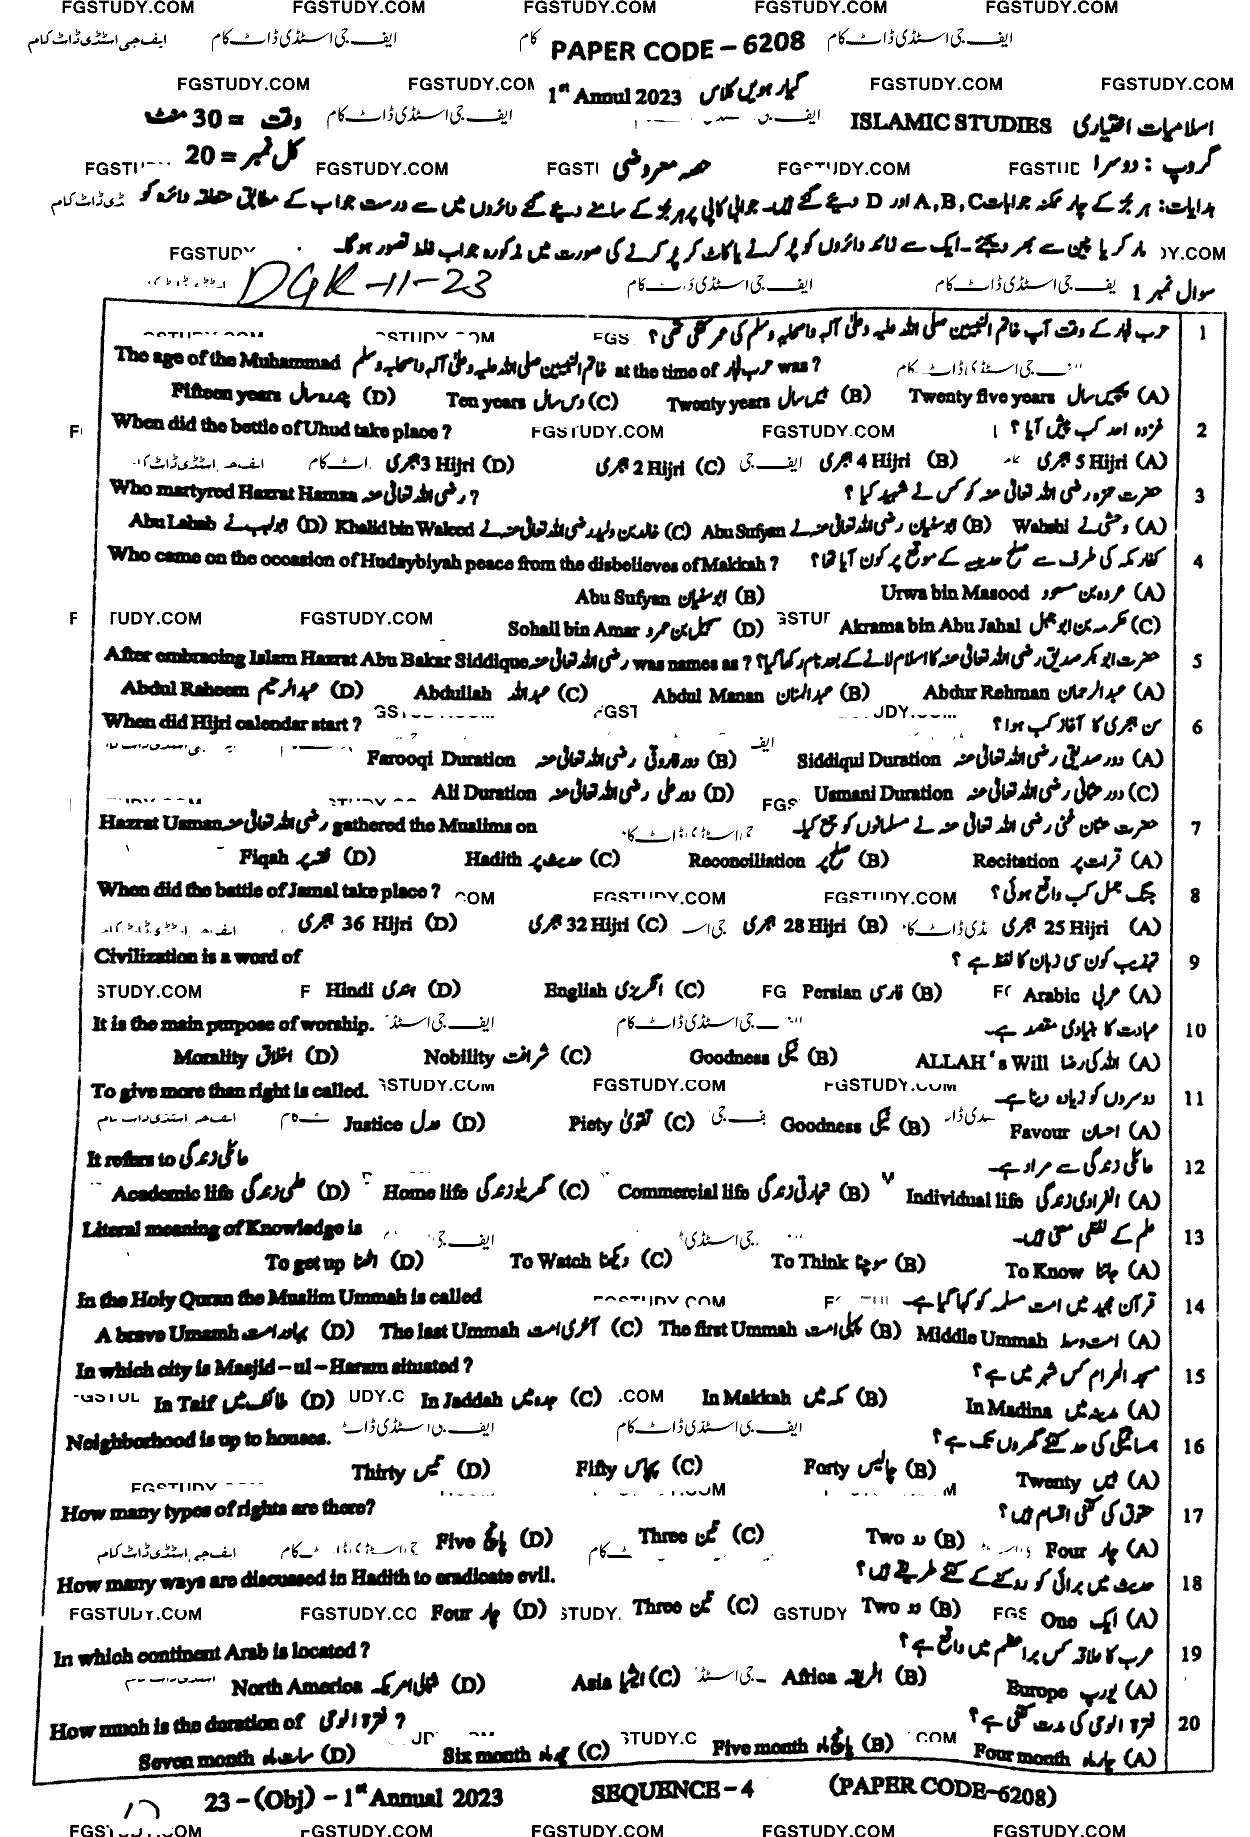 FGSTUDY.COM FGSTUDY.COM FGSTUDY.COM FGSTUDY.COM FGSTUDY.COM
ایف جی اسٹڈی ڈاٹ کام PAPER CODE – 6208 ایف جی اسٹڈی ڈاٹ کام
FGSTUDY.COM FGSTUDY.COM FGSTUDY.COM FGSTUDY.COM
گیارہویں کلاس 1st Annul 2023
اسلامیات اختیاری ISLAMIC STUDIES وقت = 30 منٹ
گروپ : دوسرا حصہ معروضی کل نمبر = 20
ہدایات: ہر جز کے چار ممکنہ جوابات A, B, C اور D دیئے گئے ہیں۔ جوابی کاپی پر ہر جز کے سامنے دیئے گئے دائروں میں سے درست جواب کے مطابق متعلقہ دائرہ کو
مارکر یا پین سے بھر دیجئے۔ ایک سے زائد دائروں کو پُر کرنے یا کاٹ کر پُر کرنے کی صورت میں مذکورہ جواب غلط تصور ہوگا۔
DGK-11-23
سوال نمبر 1
1 حرب فجار کے وقت آپ خاتم النبیین صلی اللہ علیہ وعلیٰ آلہ واصحابہ وسلم کی عمر کتنی تھی ؟
The age of the Muhammad خاتم النبیین صلی اللہ علیہ وعلیٰ آلہ واصحابہ وسلم at the time of حرب فجار was ?
(A) پچیس سال Twenty five years (B) بیس سال Twenty years (C) دس سال Ten years (D) پندرہ سال Fifteen years
2 غزوہ احد کب پیش آیا ؟ When did the battle of Uhud take place ?
(A) 5 Hijri ہجری (B) 4 Hijri ہجری (C) 2 Hijri ہجری (D) 3 Hijri ہجری
3 حضرت حمزہ رضی اللہ تعالیٰ عنہ کو کس نے شہید کیا ؟ Who martyred Hazrat Hamza رضی اللہ تعالیٰ عنہ ?
(A) وحشی نے Wahshi (B) ابوسفیان رضی اللہ تعالیٰ عنہ نے Abu Sufyan (C) خالد بن ولید رضی اللہ تعالیٰ عنہ نے Khalid bin Waleed (D) ابولہب نے Abu Lahab
4 کفار مکہ کی طرف سے صلح حدیبیہ کے موقع پر کون آیا تھا ؟ Who came on the occasion of Hudaybiyah peace from the disbelieves of Makkah ?
(A) عروہ بن مسعود Urwa bin Masood (B) ابوسفیان Abu Sufyan
(C) عکرمہ بن ابوجہل Akrama bin Abu Jahal (D) سہیل بن عمرو Sohail bin Amar
5 حضرت ابوبکر صدیق رضی اللہ تعالیٰ عنہ کا اسلام لانے کے بعد نام رکھا گیا؟ After embracing Islam Hazrat Abu Bakar Siddique رضی اللہ تعالیٰ عنہ was names as ?
(A) عبدالرحمان Abdur Rehman (B) عبدالمنان Abdul Manan (C) عبداللہ Abdullah (D) عبدالرحیم Abdul Raheem
6 سن ہجری کا آغاز کب ہوا ؟ When did Hijri calendar start ?
(A) دور صدیقی رضی اللہ تعالیٰ عنہ Siddiqui Duration (B) دور فاروقی رضی اللہ تعالیٰ عنہ Farooqi Duration
(C) دور عثمانی رضی اللہ تعالیٰ عنہ Usmani Duration (D) دور علی رضی اللہ تعالیٰ عنہ Ali Duration
7 حضرت عثمان غنی رضی اللہ تعالیٰ عنہ نے مسلمانوں کو جمع کیا۔ Hazrat Usman رضی اللہ تعالیٰ عنہ gathered the Muslims on
(A) قرات پر Recitation (B) صلح پر Reconciliation (C) حدیث پر Hadith (D) فقہ پر Fiqah
8 جنگ جمل کب واقع ہوئی ؟ When did the battle of Jamal take place ?
(A) 25 Hijri ہجری (B) 28 Hijri ہجری (C) 32 Hijri ہجری (D) 36 Hijri ہجری
9 تہذیب کون سی زبان کا لفظ ہے ؟ Civilization is a word of
(A) عربی Arabic (B) فارسی Persian (C) انگریزی English (D) ہندی Hindi
10 عبادت کا بنیادی مقصد ہے۔ It is the main purpose of worship.
(A) اللہ کی رضا ALLAH's Will (B) نیکی Goodness (C) شرافت Nobility (D) اخلاق Morality
11 دوسروں کو زیادہ دینا ہے۔ To give more than right is called.
(A) احسان Favour (B) نیکی Goodness (C) تقویٰ Piety (D) عدل Justice
12 عائلی زندگی سے مراد ہے۔ It refers to عائلی زندگی
(A) انفرادی زندگی Individual life (B) تجارتی زندگی Commercial life (C) گھریلو زندگی Home life (D) علمی زندگی Academic life
13 علم کے لفظی معنی ہیں۔ Literal meaning of Knowledge is
(A) جاننا To Know (B) سوچنا To Think (C) دیکھنا To Watch (D) اٹھنا To get up
14 قرآن مجید میں امت مسلمہ کو کہا گیا ہے۔ In the Holy Quran the Muslim Ummah is called
(A) امت وسط Middle Ummah (B) پہلی امت The first Ummah (C) آخری امت The last Ummah (D) بہادر امت A brave Umamh
15 مسجد الحرام کس شہر میں ہے ؟ In which city is Masjid – ul – Haram situated ?
(A) مدینہ میں In Madina (B) مکہ میں In Makkah (C) جدہ میں In Jaddah (D) طائف میں In Taif
16 ہمسائیگی کی حد کتنے گھروں تک ہے ؟ Neighborhood is up to houses.
(A) بیس Twenty (B) چالیس Forty (C) پچاس Fifty (D) تیس Thirty
17 حقوق کی کتنی اقسام ہیں ؟ How many types of rights are there?
(A) چار Four (B) دو Two (C) تین Three (D) پانچ Five
18 حدیث میں برائی کو روکنے کے کتنے طریقے ہیں ؟ How many ways are discussed in Hadith to eradicate evil.
(A) ایک One (B) دو Two (C) تین Three (D) چار Four
19 عرب کا علاقہ کس براعظم میں واقع ہے ؟ In which continent Arab is located ?
(A) یورپ Europe (B) افریقہ Africa (C) ایشیا Asia (D) شمالی امریکہ North America
20 فترۃ الوحی کی مدت کتنی ہے ؟ How much is the duration of فترۃ الوحی ?
(A) چار ماہ Four month (B) پانچ ماہ Five month (C) چھ ماہ Six month (D) سات ماہ Seven month
23 – (Obj) – 1st Annual 2023 SEQUENCE – 4 (PAPER CODE–6208)
FGSTUDY.COM FGSTUDY.COM FGSTUDY.COM FGSTUDY.COM